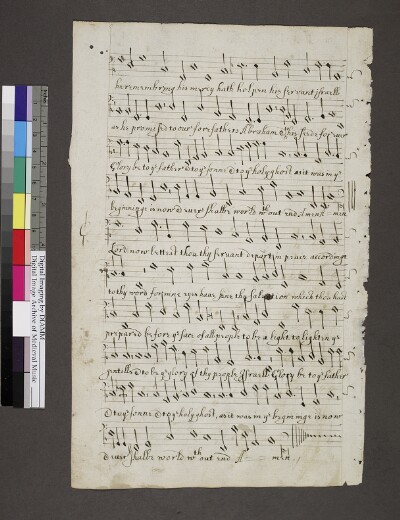 he remembring his mercy hath holpen his servant israell
as he promised to our forefathers Abraham & his seede for ever
Glory be to yᵉ father & to yᵉ sonne & to yᵉ holy ghost as it was in yᵉ
beginninge is now & ever shalbe world wᵗʰ out end Amen men
Lord now lettest thou thy servant depart in peace according
to thy word for mine eyes have seene thy salvation which thou hast
prepared before yᵉ face of all people to be a light to lighten yᵉ
gentells & to be yᵉ glory of thy people Israell Glory be to yᵉ father
& to yᵉ sonne & to yᵉ holy ghost, as it was in yᵉ beginninge is now
& ever shalbe world wᵗʰ out end A men
Digital Imaging by DIAMM
Digital Image Archive of Medieval Music